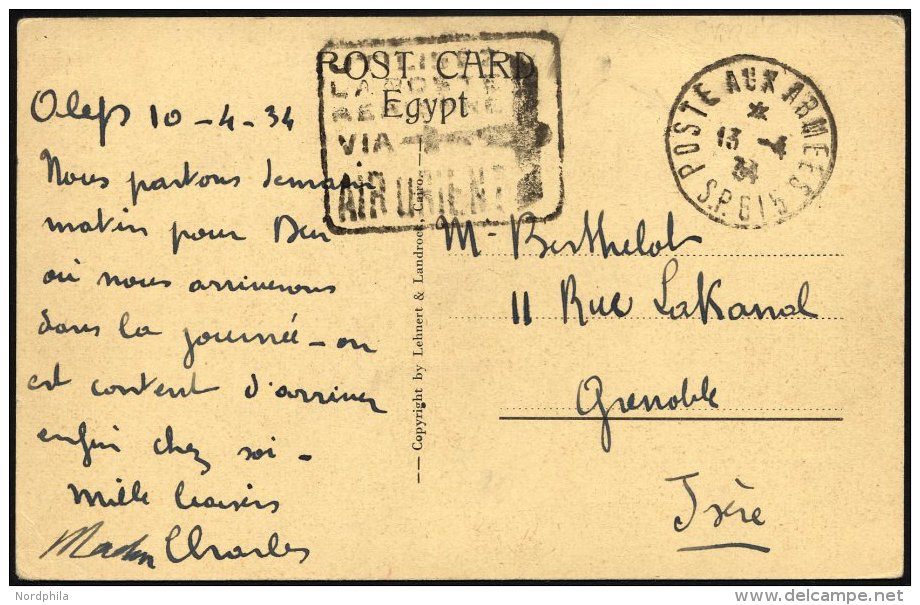 POST CARD
Egypt
LA POSTE
VIA
AIR ORIENT
POSTE AUX ARMEES
13 -4
34
S.P. 615
Alep 10-4-34
Nous partons demain
matin pour
où nous arriverons
dans la journée - on
est content d'arriver
enfin chez soi -
Mille baisers
Charles
Mr Berthelot
11 Rue Lakanal
Grenoble
Isère
— Copyright by Lehnert & Landrock, Cairo. —
Nordphila
www.delcampe.net